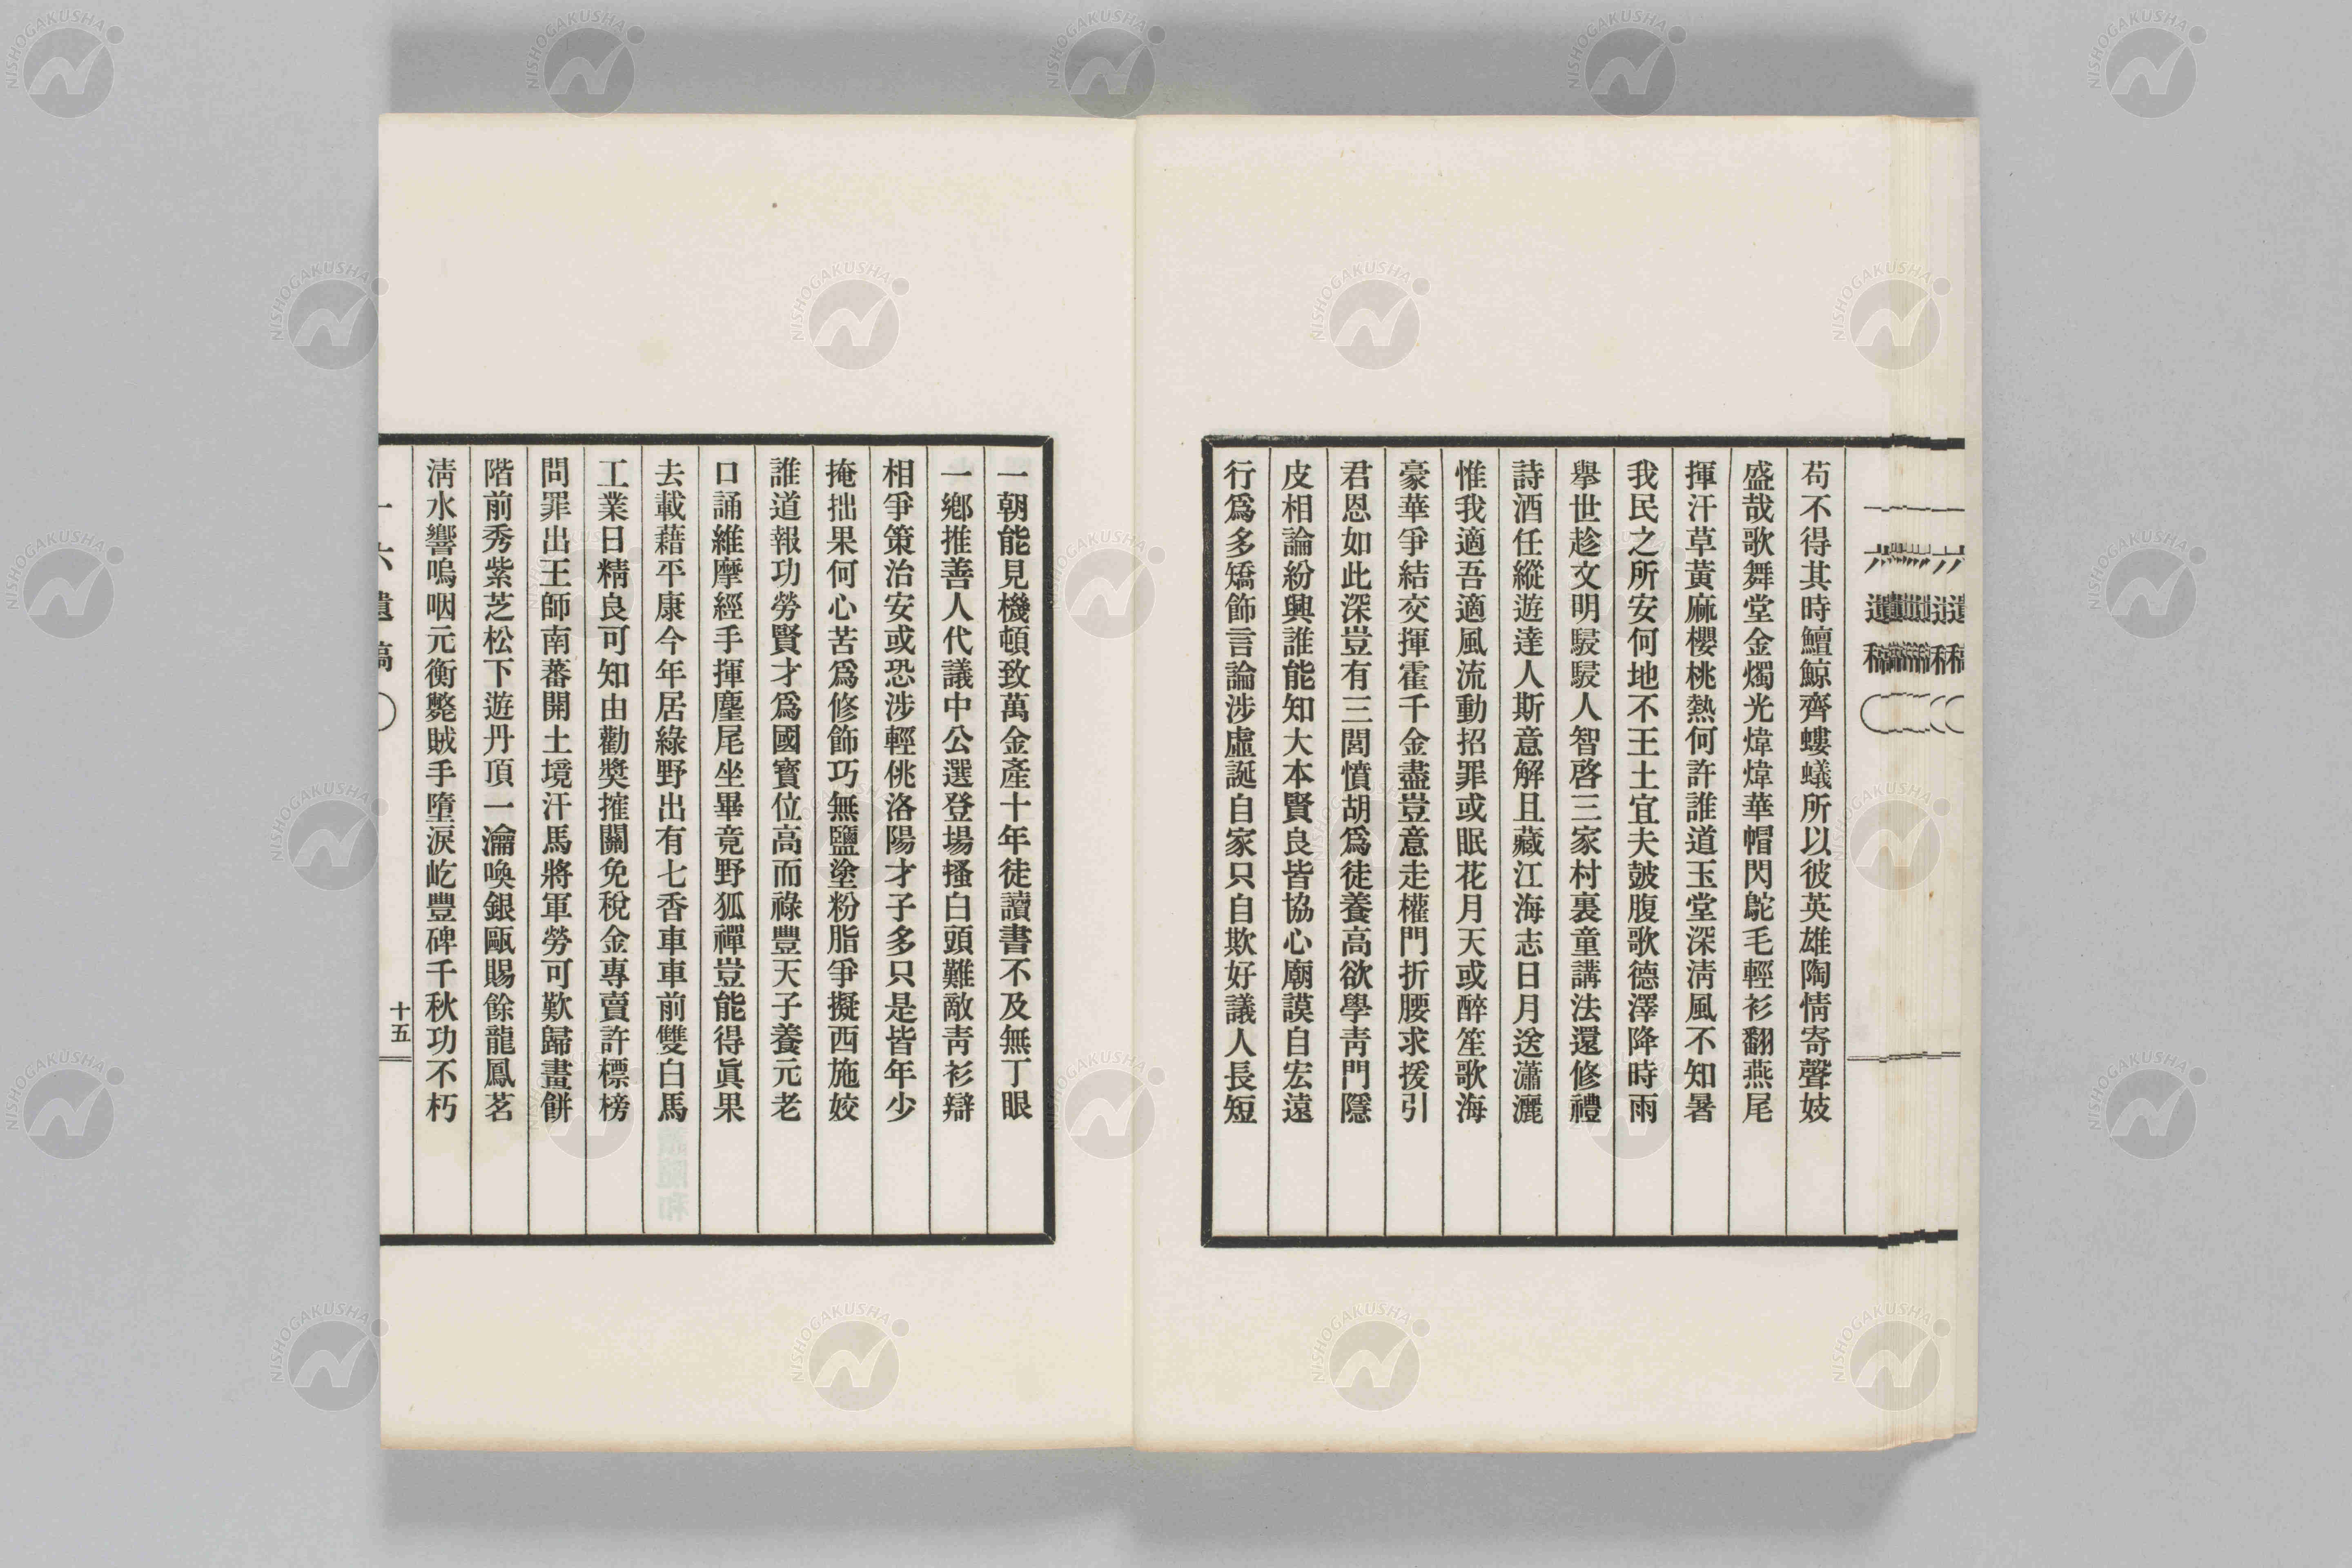 苟不得其時鱣鯨齊螻蟻所以彼英雄陶情寄聲妓
盛哉歌舞堂金燭光煒煒華帽閃鴕毛輕衫翻燕尾
揮汗草黃麻櫻桃熱何許誰道玉堂深淸風不知暑
我民之所安何地不王土宜夫皷腹歌德澤降時雨
擧世趁文明駸駸人智啓三家村裏童講法還修禮
詩酒任縱遊達人斯意解且藏江海志日月送瀟灑
惟我適吾適風流動招罪或眠花月天或醉笙歌海
豪華爭結交揮霍千金盡豈意走權門折腰求援引
君恩如此深豈有三閭憤胡爲徒養高欲學靑門隱
皮相論紛興誰能知大本賢良皆協心廟謨自宏遠
行爲多矯飾言論涉虛誕自家只自欺好議人長短
一朝能見機頓致萬金產十年徒讀書不及無丁眼
一鄕推善人代議中公選登場搔白頭難敵靑衫辯
相爭策治安或恐涉輕佻洛陽才子多只是皆年少
掩拙果何心苦爲修飾巧無鹽塗粉脂爭擬西施姣
誰道報功勞賢才爲國寳位高而祿豐天子養元老
口誦維摩經手揮麈尾坐畢竟野狐禪豈能得眞果
去載藉平康今年居綠野出有七香車車前雙白馬
工業日精良可知由勸奬搉關免稅金專賣許標榜
問罪出王師南蕃開土境汗馬將軍勞可歎歸畫餠
階前秀紫芝松下遊丹頂一瀹喚銀甌賜餘龍鳳茗
淸水響嗚咽元衡斃賊手墮淚屹豐碑千秋功不朽
一六遺稿
十五
NISHOGAKUSHA